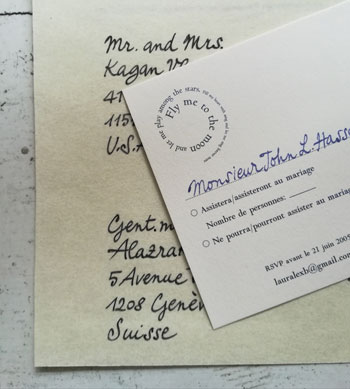 Mr. and Mrs.
Kagan
41
115
U.S.
Gent.m
5 Avenue
1208 Genèv
Suisse
Fly me to the moon and let me play among the stars.
Monsieur John L. Hass
Assistera/assisteront au mariage
Nombre de personnes:
Ne pourra/pourront assister au maria
RSVP avant le 21 juin 200
lauralexb@gmail.com